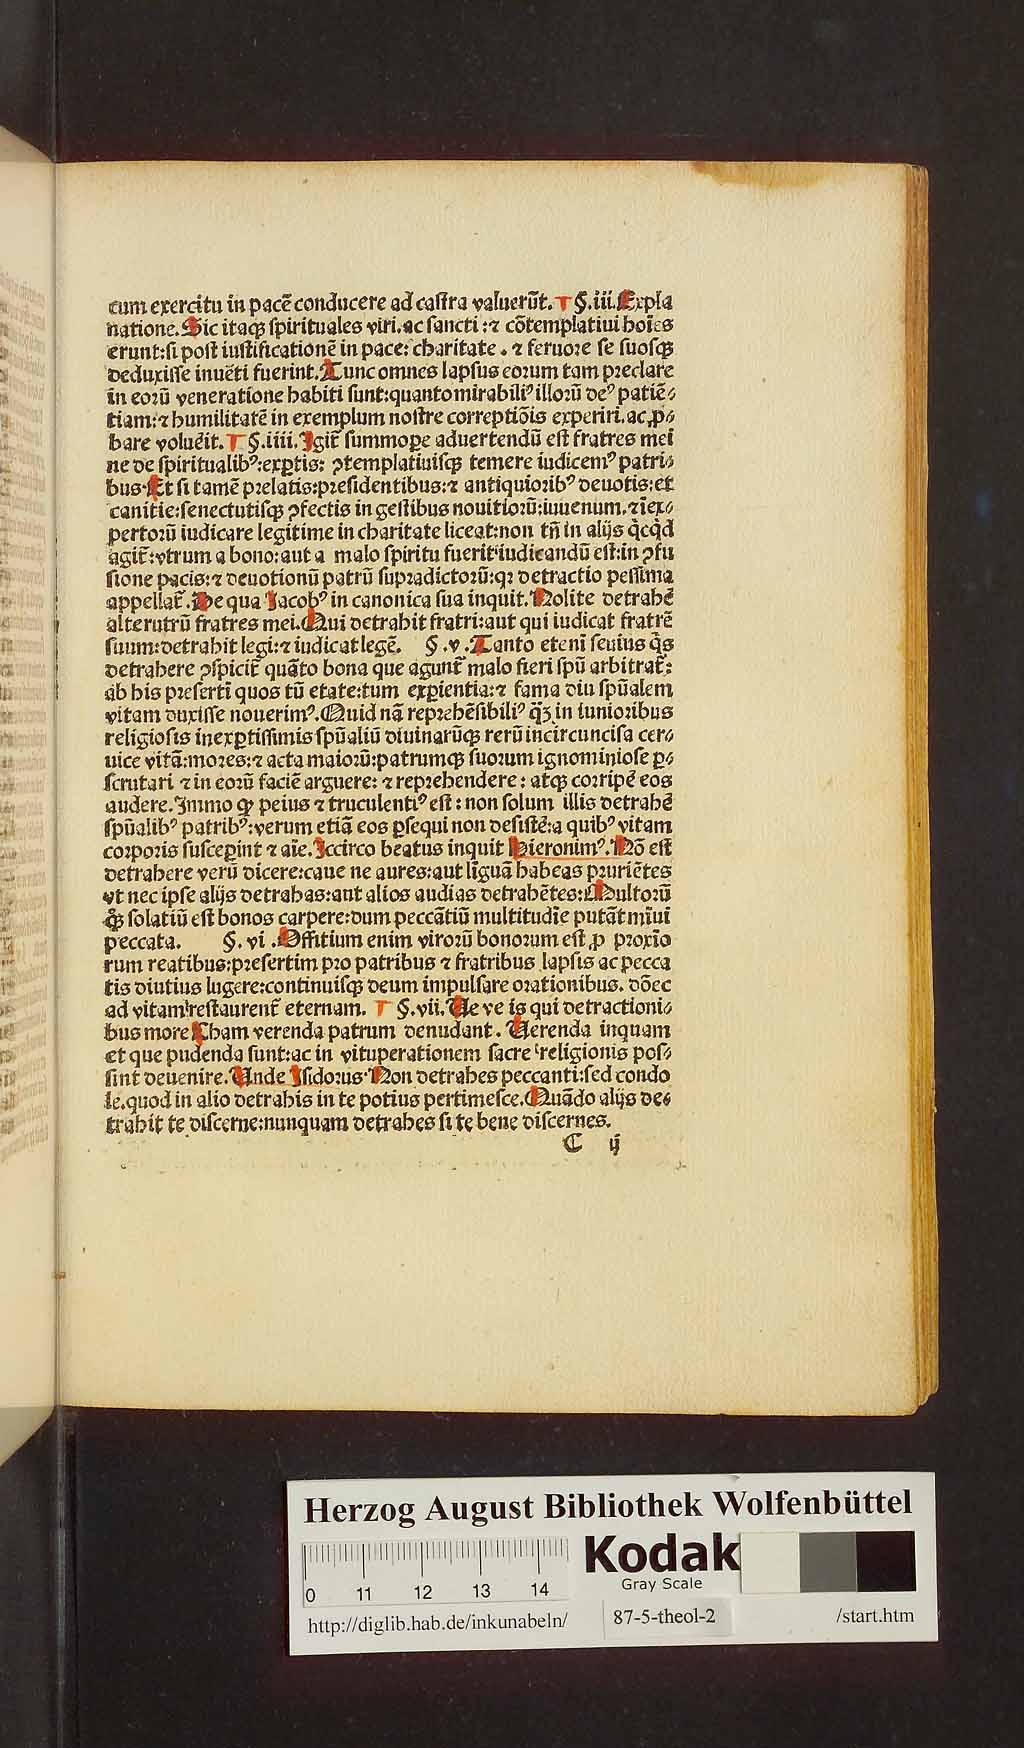 cum exercitu in pacē conducere ad castra valuerūt. ¶ §.iii. Expla
natione. Sic itaqꝫ spirituales viri.ac sancti:⁊ cōtemplatiui hoīes
erunt:si post iustificationē in pace: charitate . ⁊ feruore se suosqꝫ
deduxisse inuēti fuerint. Tunc omnes lapsus eorum tam preclare
in eorū veneratione habiti sunt:quanto mirabiliꝰ illorū deꝰ patiē⸗
tiam:⁊ humilitatē in exemplum nostre correptiōis experiri.ac ꝓ⸗
bare voluēit. ¶ §.iiii. Igit̄ summope̱ aduertendū est fratres mei
ne de spiritualibꝰ:exꝑtis: ꝯtemplatiuisqꝫ temere iudicemꝰ patri⸗
bus. Et si tamē prelatis:presidentibus:⁊ antiquioribꝰ deuotis:et
canitie:senectutisqꝫ ꝯfectis in gestibus nouitiorū:iuuenum.⁊ īex⸗
pertorū iudicare legitime in charitate liceat:non tn̄ in alijs q̊cq̊d
agit̄:vtrum a bono:aut a malo spiritu fuerit iudicandū est:in ꝯfu
sione pacis:⁊ deuotionū patrū supradictorū:qꝛ detractio pessima
appellat̄. De qua Jacobꝰ in canonica sua inquit. Nolite detrahē
alterutrū fratres mei. Qui detrahit fratri:aut qui iudicat fratrē
suum:detrahit legi:⁊ iudicat legē. §.v. Tanto etenī seuius q̄s
detrahere ꝯspicit̄ quāto bona que agunt̄ malo fieri spū arbitrat̄:
ab his presertī quos tū etate:tum exꝑientia:⁊ fama diu spūalem
vitam duxisse nouerimꝰ. Quid nā reprehēsibiliꝰ qꝫ̄ in iunioribus
religiosis inexꝑtissimis spūaliū diuinarūqꝫ rerū incircuncisa cer⸗
uice vitā:mores:⁊ acta maiorū:patrumqꝫ suorum ignominiose ꝑ⸗
scrutari ⁊ in eorū faciē arguere: ⁊ reprehendere: atqꝫ corripē eos
audere. Immo qꝙ peius ⁊ truculentiꝰ est: non solum illis detrahē
spūalibꝰ patribꝰ:verum etiā eos ꝑsequi non desistē:a quibꝰ vitam
corporis susceꝑint ⁊ aīe. Iccirco beatus inquit Hieronimꝰ. Nō est
detrahere verū dicere:caue ne aures:aut līguā habeas pruriētes
vt nec ipse alijs detrahas:aut alios audias detrahētes: Multorū
qꝫ̄ solatiū est bonos carpere:dum peccātiū multitudīe putāt mīui
peccata. §. vi . Offitium enim virorū bonorum est ꝓ proxīo
rum reatibus:presertim pro patribus ⁊ fratribus lapsis ac pecca
tis diutius lugere:continuisqꝫ deum impulsare orationibus. dōec
ad vitam restaurent̄ eternam. ¶ §.vii. Ue ve is qui detractioni⸗
bus more Cham verenda patrum denudant. Uerenda inquam
et que pudenda sunt:ac in vituperationem sacre religionis pos⸗
sint deuenire. Unde Isidorus. Non detrahes peccanti:sed condo
le.quod in alio detrahis in te potius pertimesce. Quādo alijs de⸗
trahit te discerne:nunquam detrahes si te bene discernes.
C ij
Herzog August Bibliothek Wolfenbüttel
0 11 12 13 14
Kodak
Gray Scale
http://diglib.hab.de/inkunabeln/ 87-5-theol-2 /start.htm